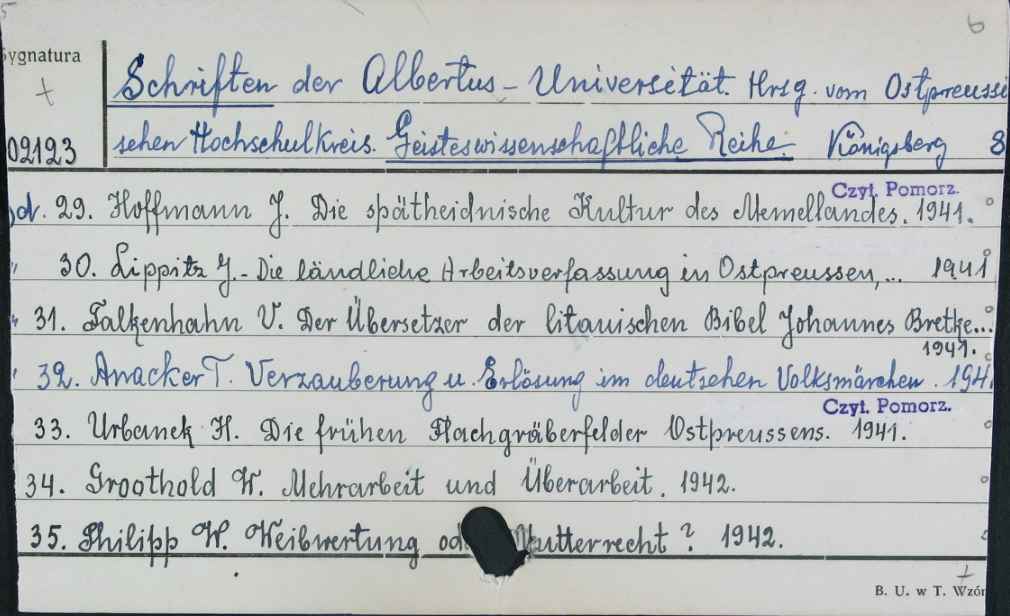 5
6
Sygnatura
Schriften der Albertus-Universität. Hrsg. vom Ostpreussi
02123 schen Hochschulkreis. Geisteswissenschaftliche Reihe. Königsberg 8
Czyt. Pomorz.
Bd. 29. Hoffmann J. Die spätheidnische Kultur des Memellandes. 1941.
" 30. Lippitz J. - Die ländliche Arbeitsverfassung in Ostpreussen,... 1941
" 31. Falkenhahn V. Der Übersetzer der litauischen Bibel Johannes Bretke...
1941.
" 32. Anacker T. Verzauberung u. Erlösung im deutschen Volksmärchen. 194
Czyt. Pomorz.
33. Urbanek H. Die frühen Flachgräberfelder Ostpreussens. 1941.
34. Groothold W. Mehrarbeit und Überarbeit. 1942.
35. Philipp W. Weibwertung od Mutterrecht? 1942.
B. U. w T. Wzór